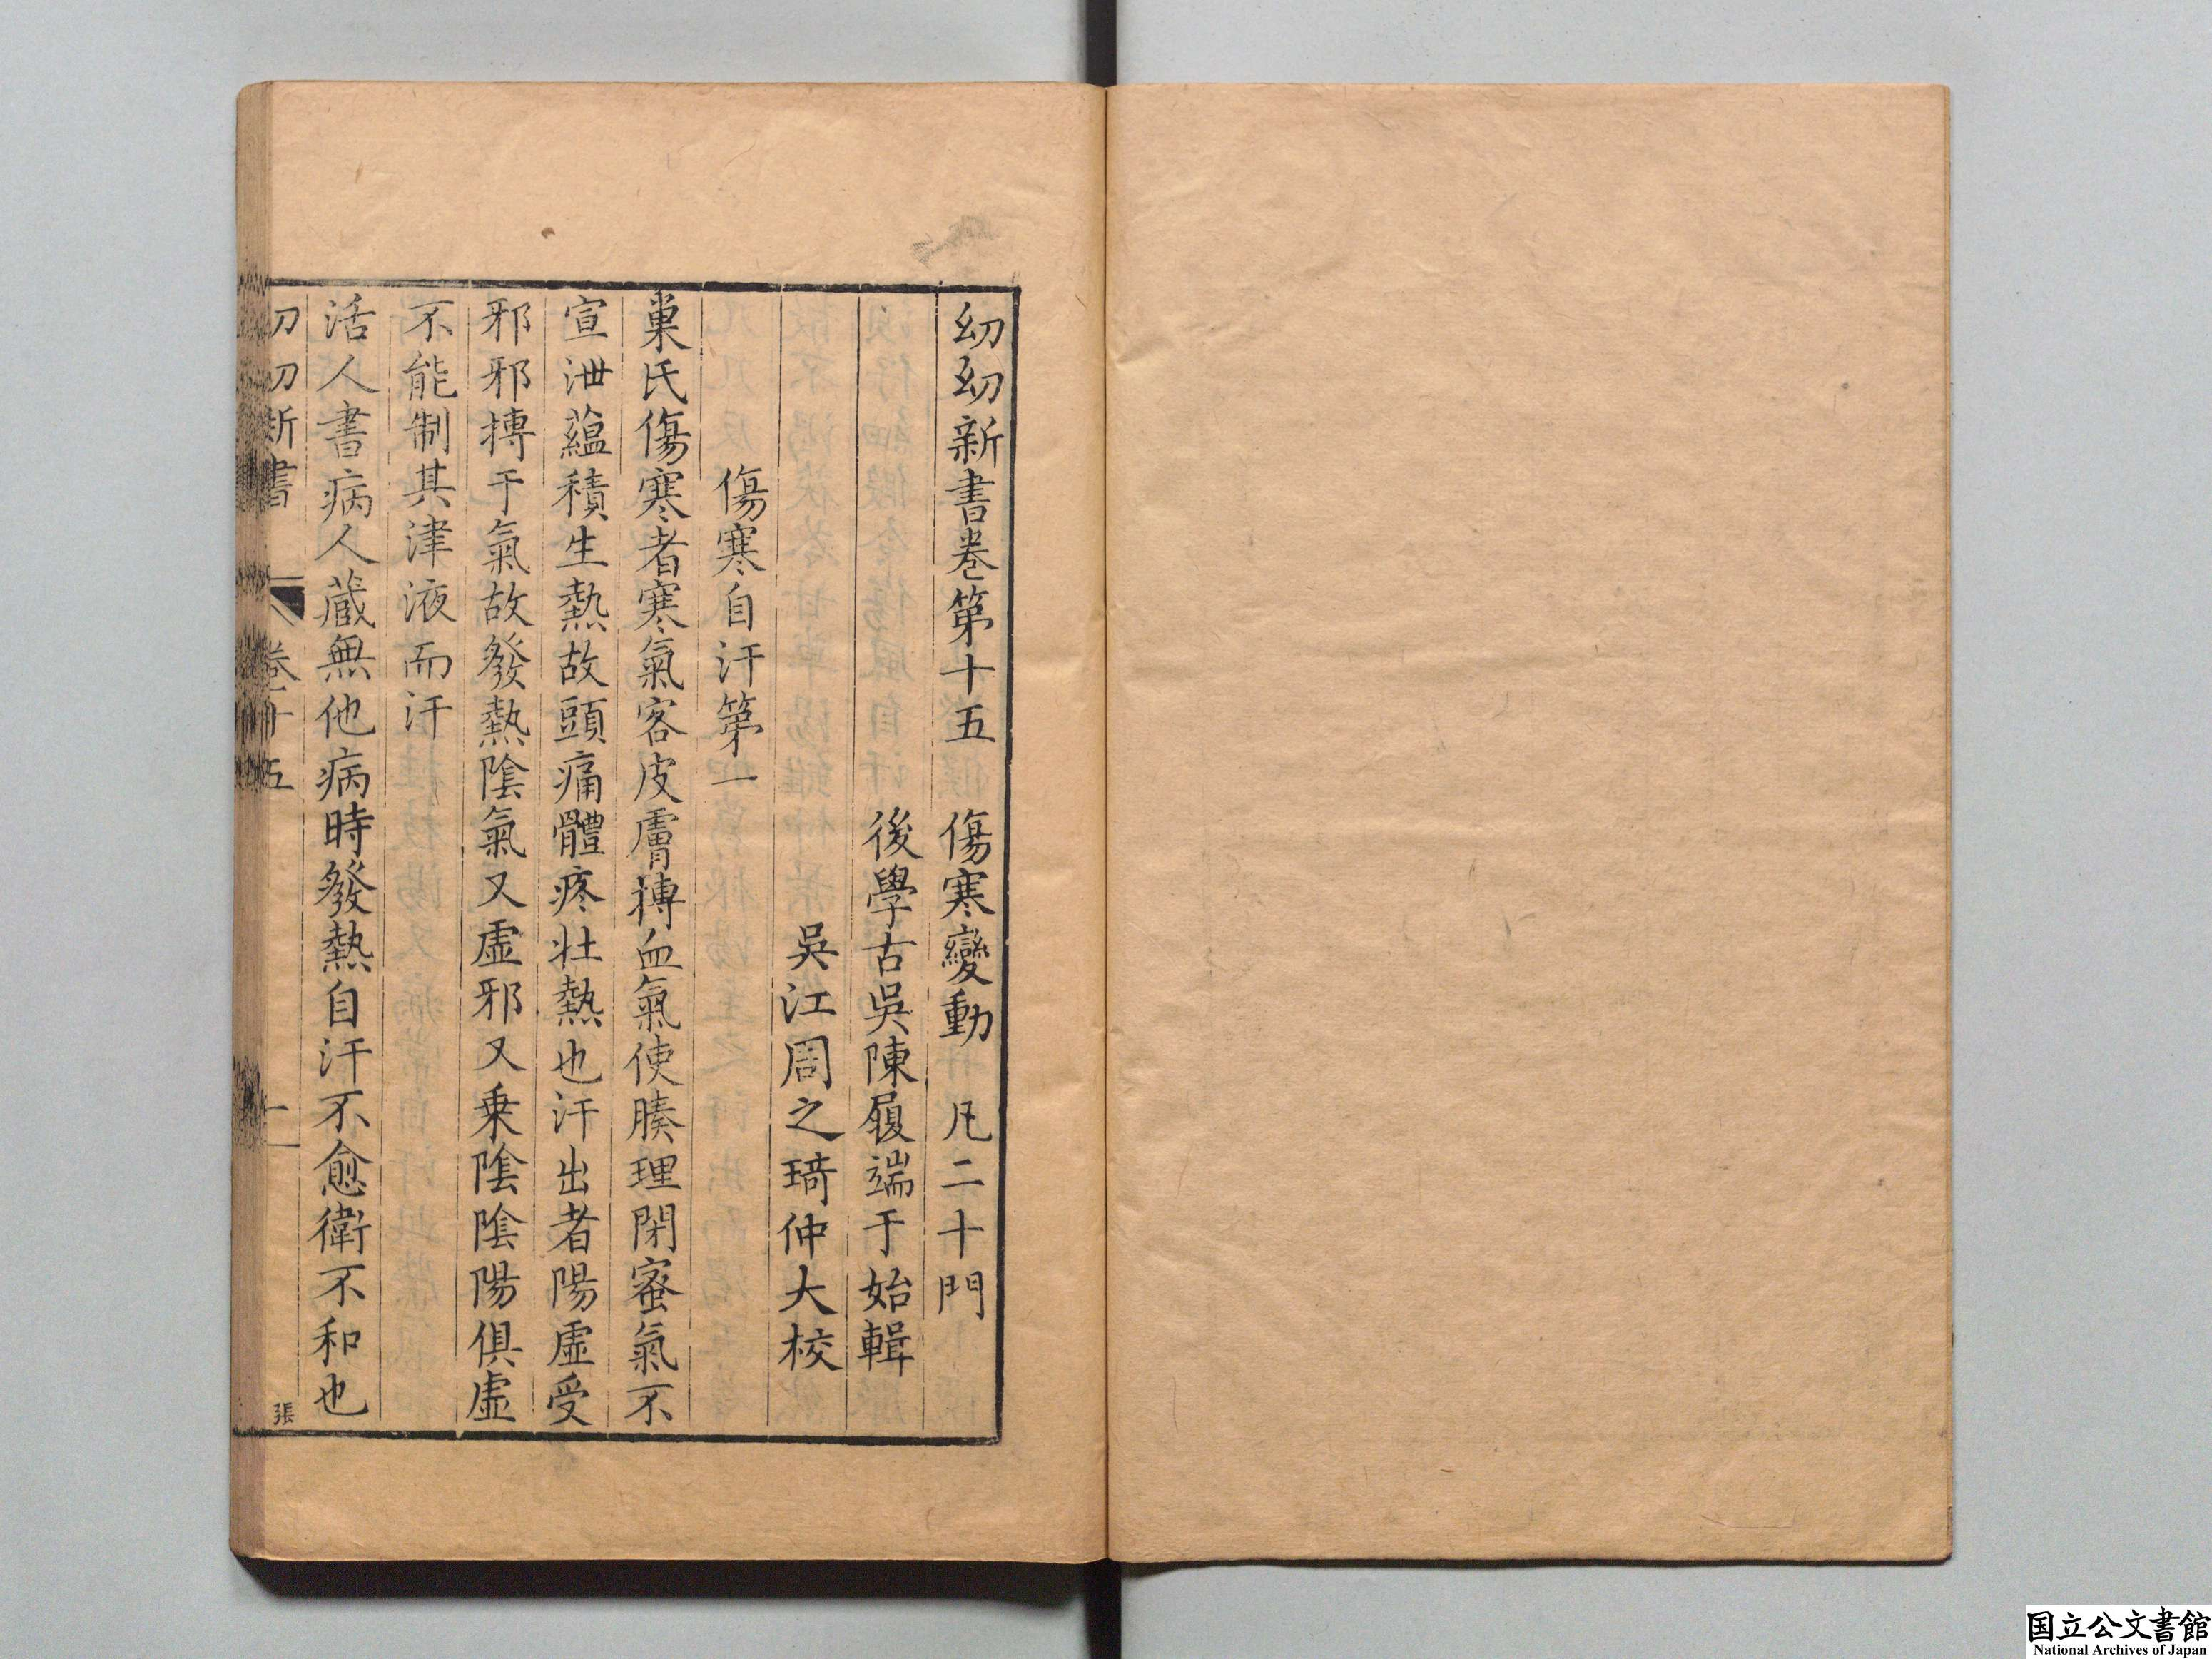 幼幼新書卷第十五　傷寒變動　凡二十門
後學古吳陳履端于始輯
吳江周之琦仲大校
傷寒自汗第一
巢氏傷寒者寒氣客皮膚搏血氣使腠理閉蜜氣不
宣泄蘊積生熱故頭痛體疼壯熱也汗出者陽虛受
邪邪搏于氣故發熱陰氣又虛邪又乗陰陰陽俱虛
不能制其津液而汗
活人書病人蔵無他病時發熱自汗不愈衛不和也
幼幼新書　卷十五　一　張
国立公文書館
National Archives of Japan